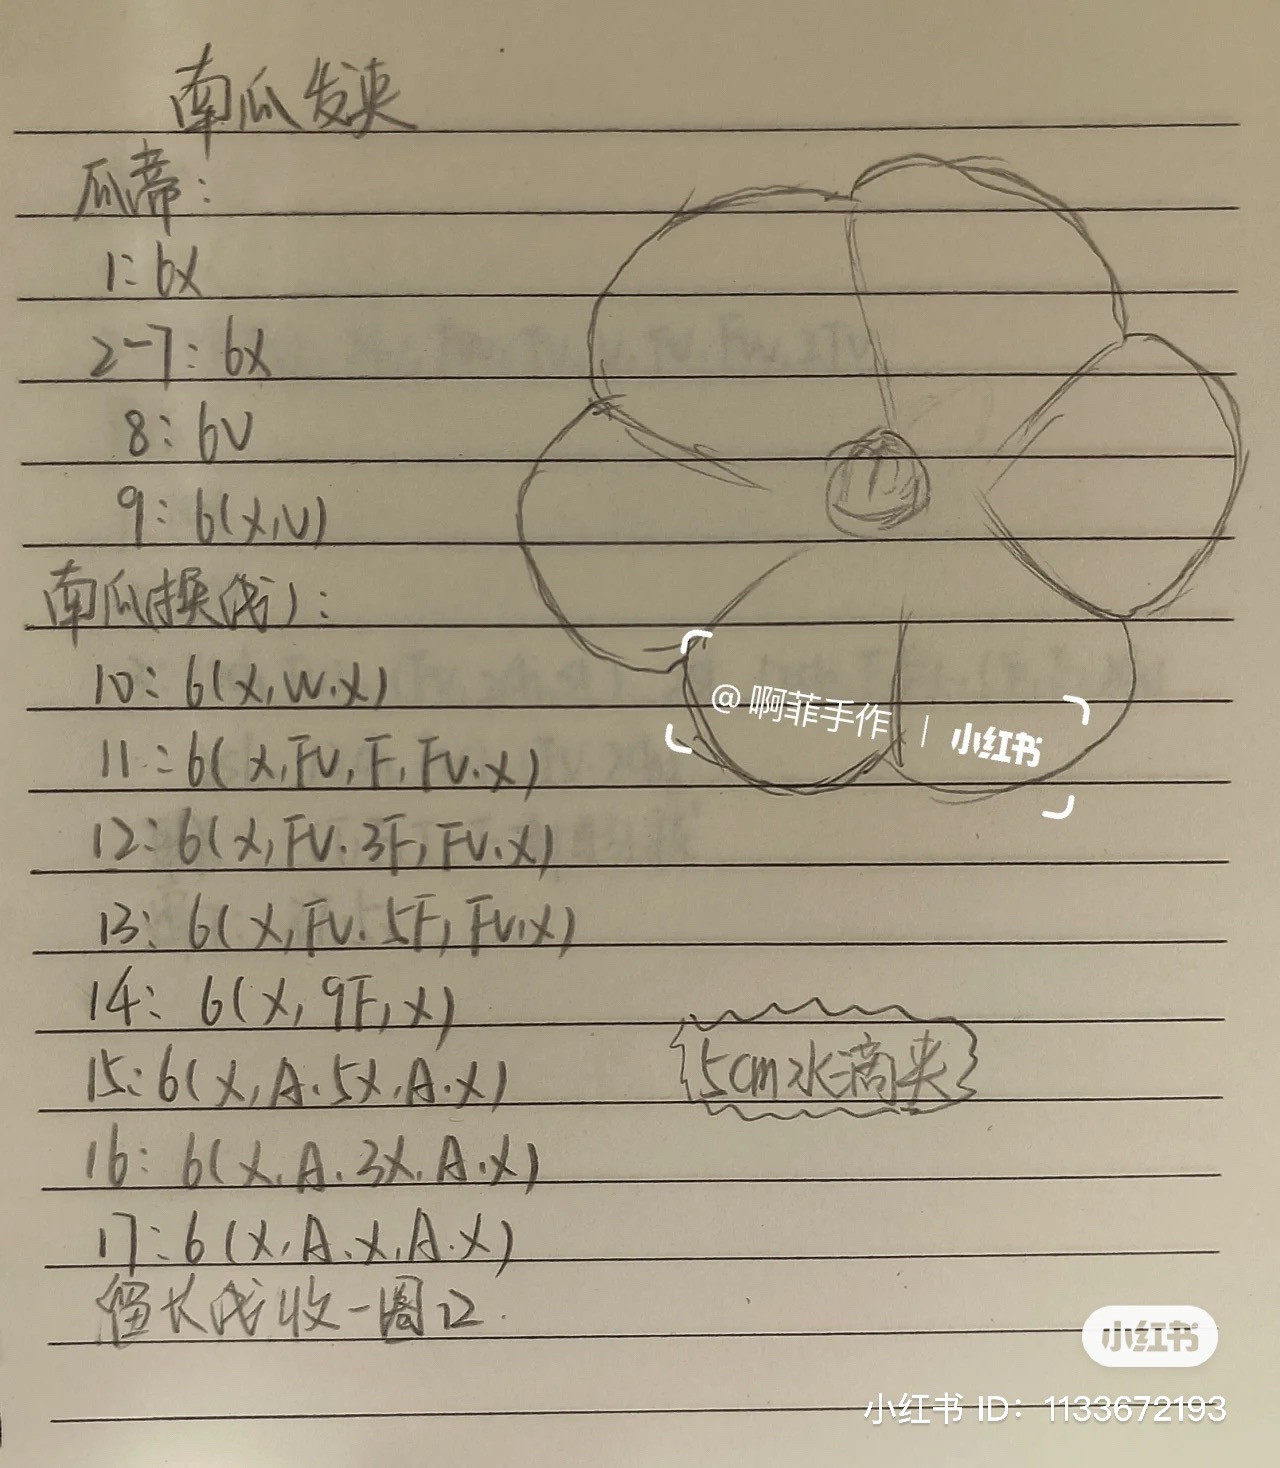 南瓜发夹
瓜蒂:
1: 6X
2-7: 6X
8: 6V
9: 6(X,V)
南瓜(换线):
10: 6(X,W.X)
11: 6(X,FV,F,FV.X)
12: 6(X,FV.3F,FV.X)
13: 6(X,FV.5F,FV.X)
14: 6(X,9F,X)
15: 6(X,A.5X.A.X)
16: 6(X.A.3X.A.X)
17: 6(X.A.X.A.X)
留长线收一圈口.
@啊菲手作 | 小红书
5cm水滴夹
小红书
小红书 ID: 1133672193